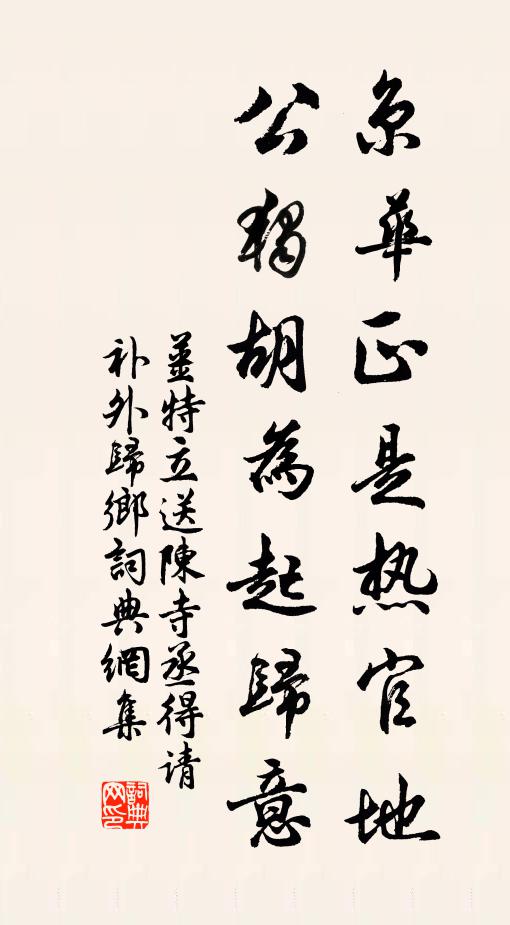 京華正是热官地
公獨胡為起歸意
姜特立送陳寺丞得请
补外歸鄉詞典網集
詞典
网印